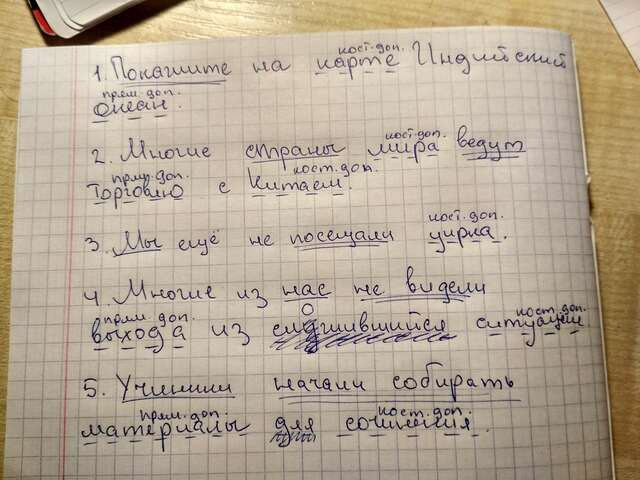 кост. доп.
1. Покажите на карте Индийский
прям. доп.
океан.
кост. доп.
2. Многие страны мира ведут
прям. доп. кост. доп.
торговлю с Китаем.
кост. доп.
3. Мы ещё не посещали цирка.
4. Многие из нас не видели
прям. доп. кост. доп.
выхода из сложившийся ситуации.
5. Ученики начали собирать
прям. доп. кост. доп.
материалы для сочинения.